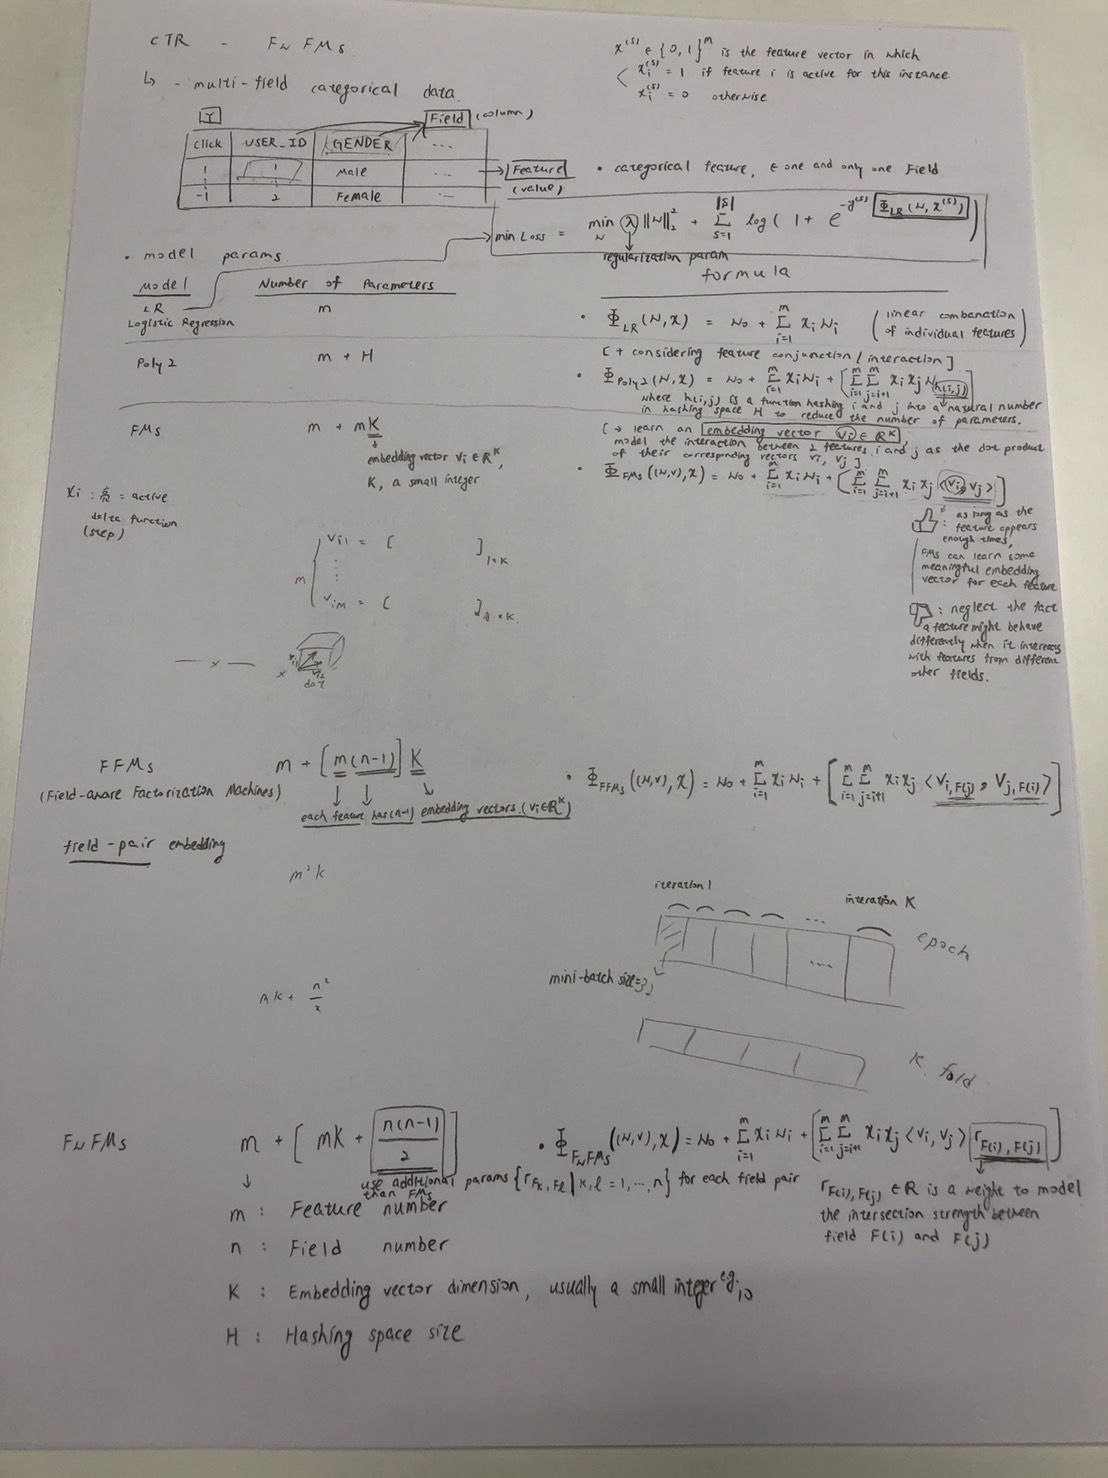 CTR - FwFMs
↳ - multi-field categorical data
x^(s) ∈ {0,1}^m is the feature vector in which
x_i^(s) = 1 if feature i is active for this instance
x_i^(s) = 0 otherwise
Y
Field (column)
Click USER_ID GENDER ...
1 1 Male ... → Feature
(value)
-1 2 Female ...
• categorical feature, ∈ one and only one Field
min Loss = min_w λ ||w||_2^2 + Σ_{s=1}^{|S|} log( 1 + e^{-y^(s) Φ_LR(w, x^(s))} )
regularization param
• model params
formula
Model Number of Parameters
LR m
Logistic Regression
• Φ_LR(w,x) = w0 + Σ_{i=1}^{m} x_i w_i (linear combenation
of individual features)
Poly2 m + H
[ + considering feature conjunction / interaction ]
• Φ_Poly2(w,x) = w0 + Σ_{i=1}^{m} x_i w_i + [ Σ_{i=1}^{m} Σ_{j=i+1}^{m} x_i x_j w_h(i,j) ]
where h(i,j) is a function hashing i and j into a natural number
in hashing space H to reduce the number of parameters.
FMs m + mK
embedding vector v_i ∈ R^K,
K, a small integer
[ → learn an embedding vector v_i ∈ R^K,
model the interaction between 2 features i and j as the dot product
of their corresponding vectors v_i, v_j ]
• Φ_FMs((w,v),x) = w0 + Σ_{i=1}^{m} x_i w_i + [ Σ_{i=1}^{m} Σ_{j=i+1}^{m} x_i x_j <v_i, v_j> ]
x_i : 亮 = active
delta function
(step)
: as long as the
feature appears
enough times,
FMs can learn some
meaningful embedding
vector for each feature
m { v_i1 = [ ]_1×K
v_im = [ ]_1×K
: neglect the fact
a feature might behave
differently when it intereacts
with features from different
other fields.
dot
FFMs m + [m(n-1)] K
(Field-aware Factorization Machines)
each feature has (n-1) embedding vectors (v_i ∈ R^K)
• Φ_FFMs((w,v),x) = w0 + Σ_{i=1}^{m} x_i w_i + [ Σ_{i=1}^{m} Σ_{j=i+1}^{m} x_i x_j <v_i,F(j), v_j,F(i)> ]
field-pair embedding
m²k
iteration 1 ... interation K
epoch
mini-batch size=32
nk + n²/2
K fold
FwFMs m + [ mK + n(n-1)/2 ]
• Φ_FwFMs((w,v),x) = w0 + Σ_{i=1}^{m} x_i w_i + [ Σ_{i=1}^{m} Σ_{j=i+1}^{m} x_i x_j <v_i, v_j> r_F(i),F(j) ]
use additional params { r_Fk,Fl | k,l = 1,...,n } for each field pair
than FMs
r_F(i),F(j) ∈ R is a weight to model
the intersection strength between
field F(i) and F(j)
m : Feature number
n : Field number
K : Embedding vector dimension, usually a small integer e.g. 10
H : Hashing space size